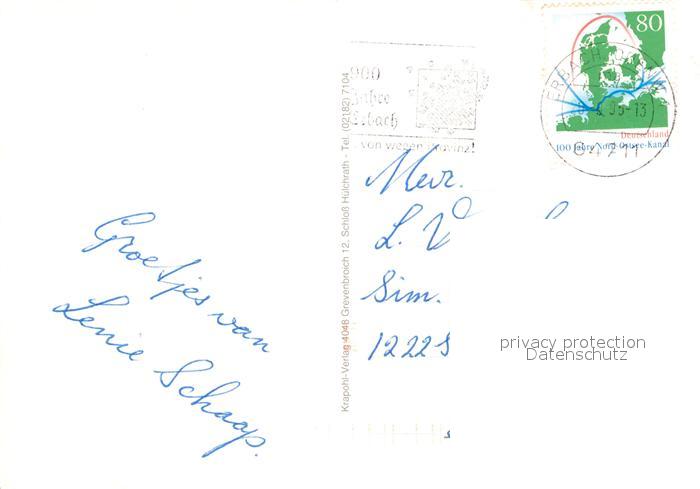 Groetjes van
Lenie Schaap.
Krapohl-Verlag 4048 Grevenbroich 12, Schloß Hülchrath - Tel. (02182) 7104
900
Jahre
Erbach
...von wegen Provinz!
80
Deutschland
100 Jahre Nord-Ostsee-Kanal
ERBACH
95-13
64711
Mevr.
L. V
Sim.
1222
privacy protection
Datenschutz